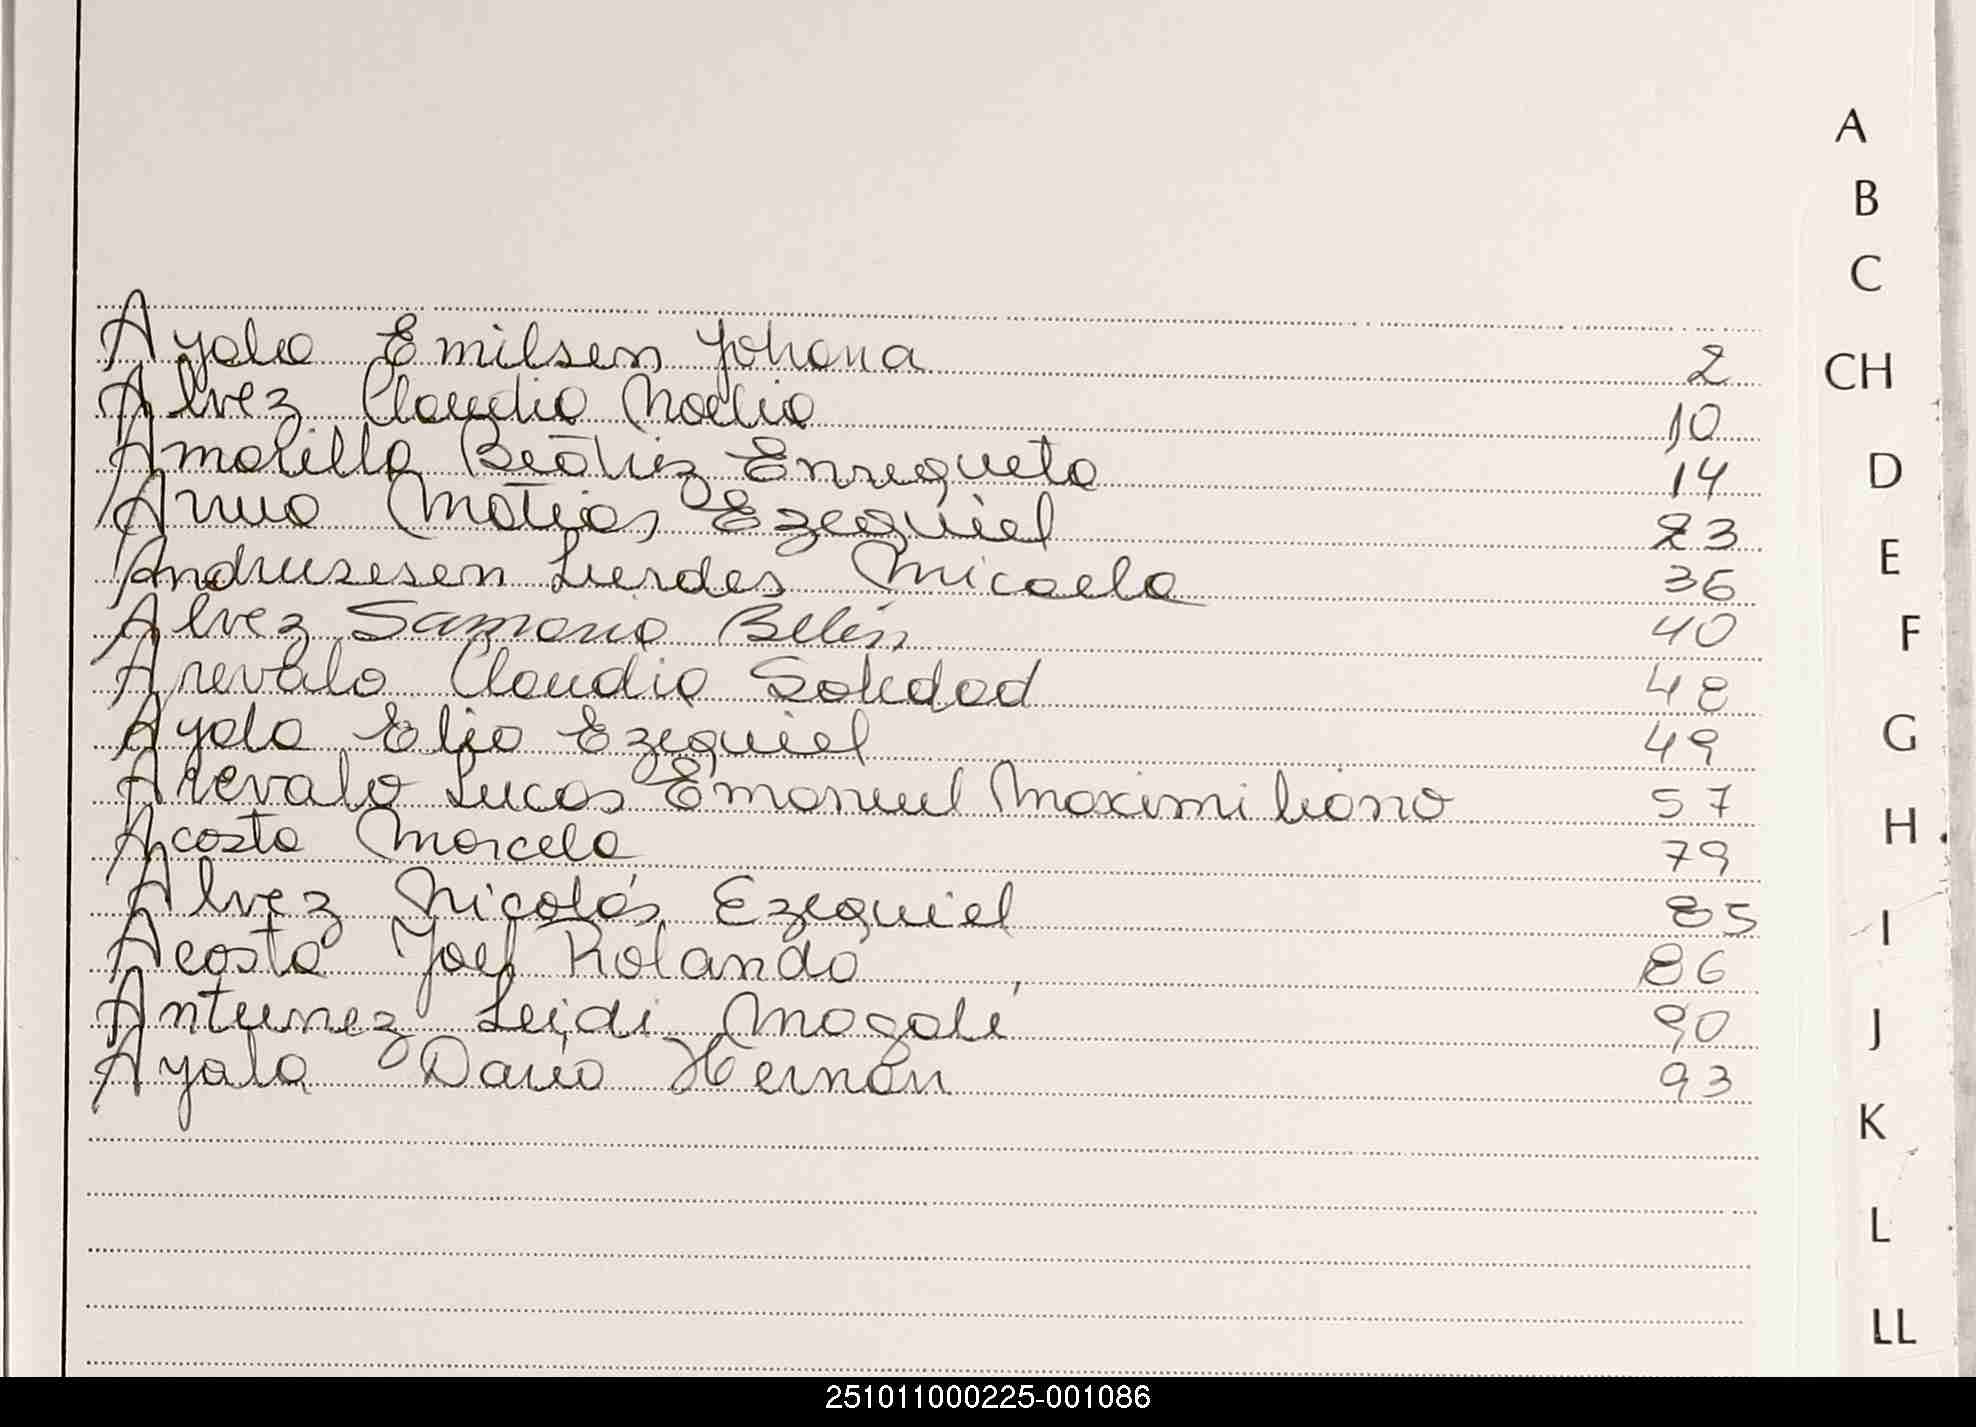 Ayala Emilsen Yohana 2
Alvez Claudia Noelia 10
Amarilla Beatriz Enriqueta 14
Matias Ezequiel 23
Lurdes Micaela 36
Alvez Samaria Belén 40
Arevalo Claudia Soledad 48
Ayala Elio Ezequiel 49
Arevalo Lucas Emanuel Maximiliano 57
Acosta Marcela 79
Alvez Nicolás Ezequiel 85
Acosta Joel Rolando 86
Antunez Leidi Magalí 90
Ayala Dario Hernán 93
A
B
C
CH
D
E
F
G
H
I
J
K
L
LL
251011000225-001086